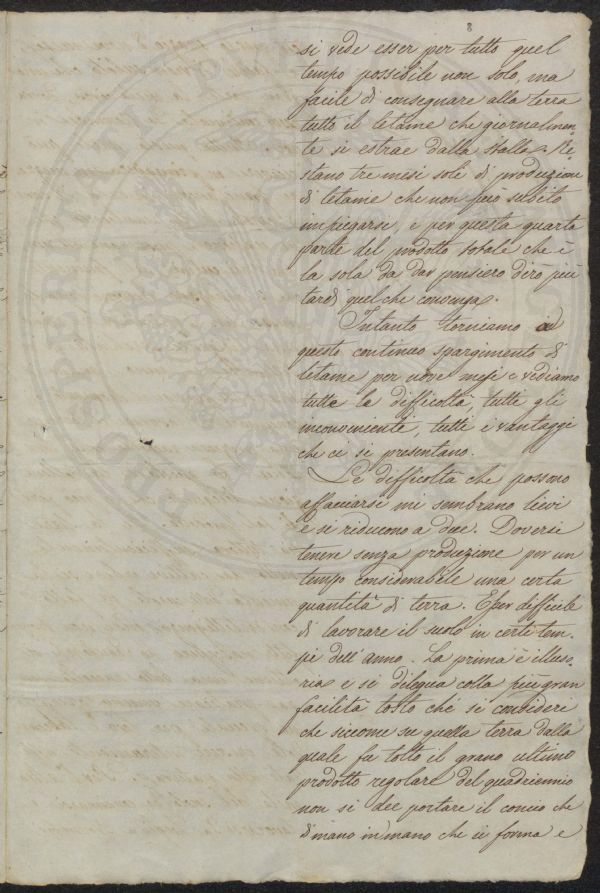 8
si vede esser per tutto quel
tempo possibile non solo, ma
facile di consegnare alla terra
tutto il letame che giornalmen-
te si estrae dalla stalla. Re-
stano tre mesi soli di produzione
di letame che non può subito
impiegarsi, e per questa quarta
parte del prodotto totale che è
la sola da dar pensiero dirò più
tardi quel che convenga.
Intanto torniamo ad
questo continuo spargimento di
letame per nove mesi e vediamo
tutte le difficoltà, tutti gli
inconvenienti, tutti i vantaggi
che ci si presentano.
Le difficoltà che possono
affacciarsi mi sembrano lievi
e si riducono a due. Doversi
tenere senza produzione per un
tempo considerabile una certa
quantità di terra. Esser difficile
di lavorare il suolo in certi tem-
pi dell'anno. La prima è illuso-
ria e si dilegua colla più gran
facilità tosto che si consideri
che siccome su quella terra dalla
quale fu tolto il grano ultimo
prodotto regolare del quadriennio
non si dee portare il concio che
di mano in mano che si forma e